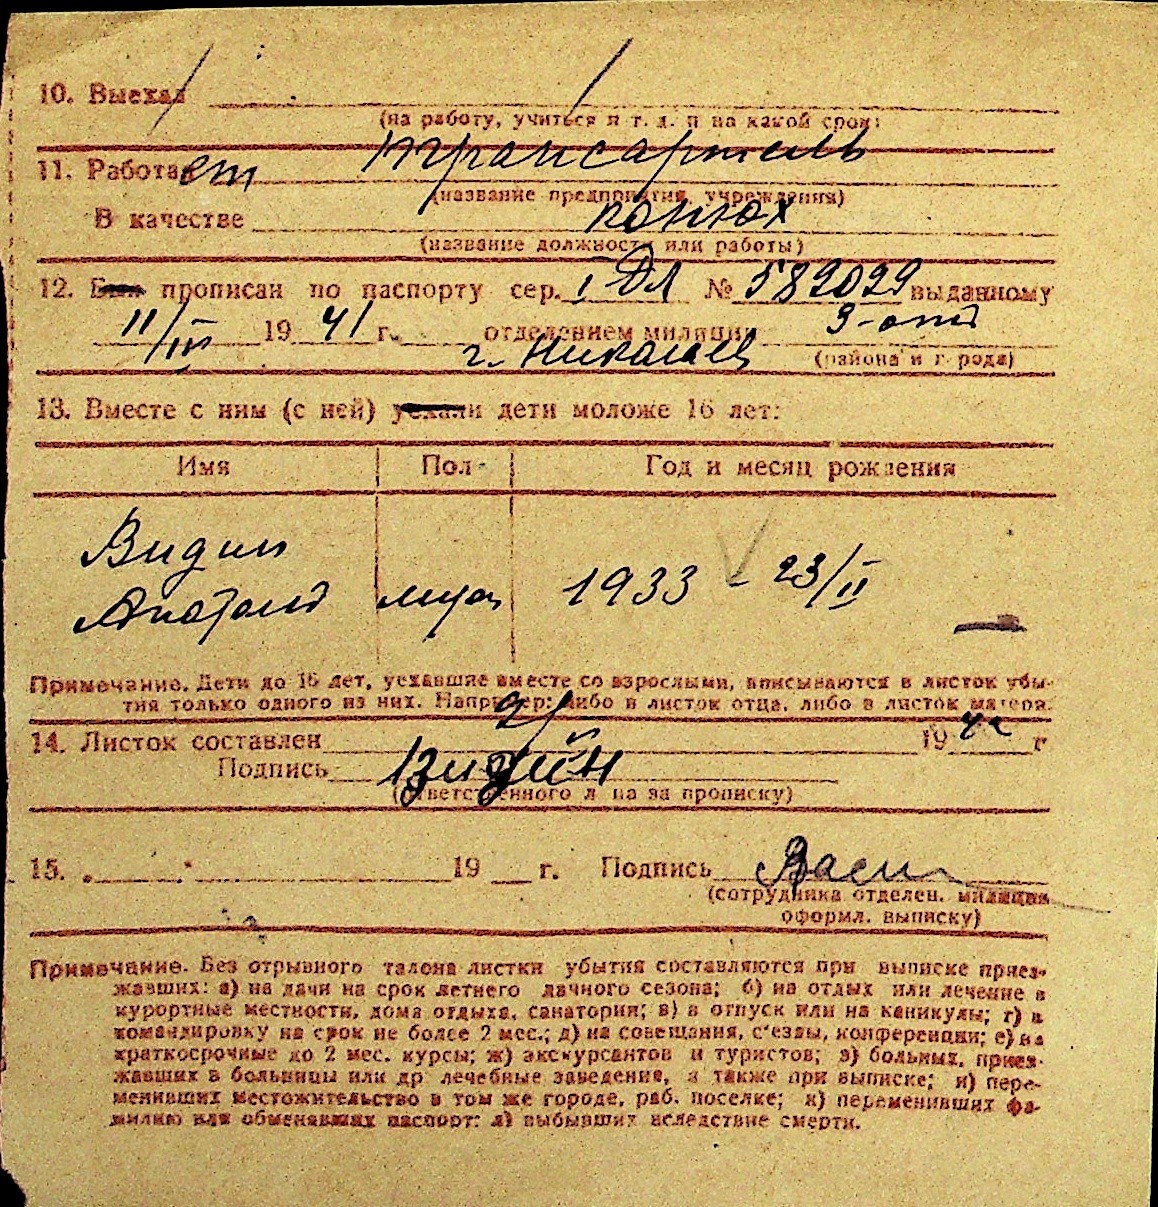 10. Выехал
(на работу, учиться и т. д. и на какой срок)
11. Работает трансартель
(название предприятия, учреждения)
В качестве конюх
(название должности или работы)
12. Был прописан по паспорту сер. I ДЛ № 589099 выданному
11/III 1941 г. отделением милиции 3-отд
г. Николаев (района и города)
13. Вместе с ним (с ней) уехали дети моложе 16 лет:
Имя Пол Год и месяц рождения
Видин
Анатолий муж 1933 - 23/II
Примечание. Дети до 16 лет, уехавшие вместе со взрослыми, вписываются в листок убы-
тия только одного из них. Например: либо в листок отца, либо в листок матери.
14. Листок составлен 19 г
Подпись Видин
(ответственного лица за прописку)
15. 19 г. Подпись
(сотрудника отделен. милиции
оформл. выписку)
Примечание. Без отрывного талона листки убытия составляются при выписке приез-
жавших: а) на дачи на срок летнего дачного сезона; б) на отдых или лечение в
курортные местности, дома отдыха, санатории; в) в отпуск или на каникулы; г) в
командировку на срок не более 2 мес.; д) на совещания, с'езды, конференции; е) на
краткосрочные до 2 мес. курсы; ж) экскурсантов и туристов; з) больных, приез-
жавших в больницы или др лечебные заведения, а также при выписке; и) пере-
менивших местожительство в том же городе, раб. поселке; к) переменивших фа-
милию или обменявших паспорт; л) выбывших вследствие смерти.